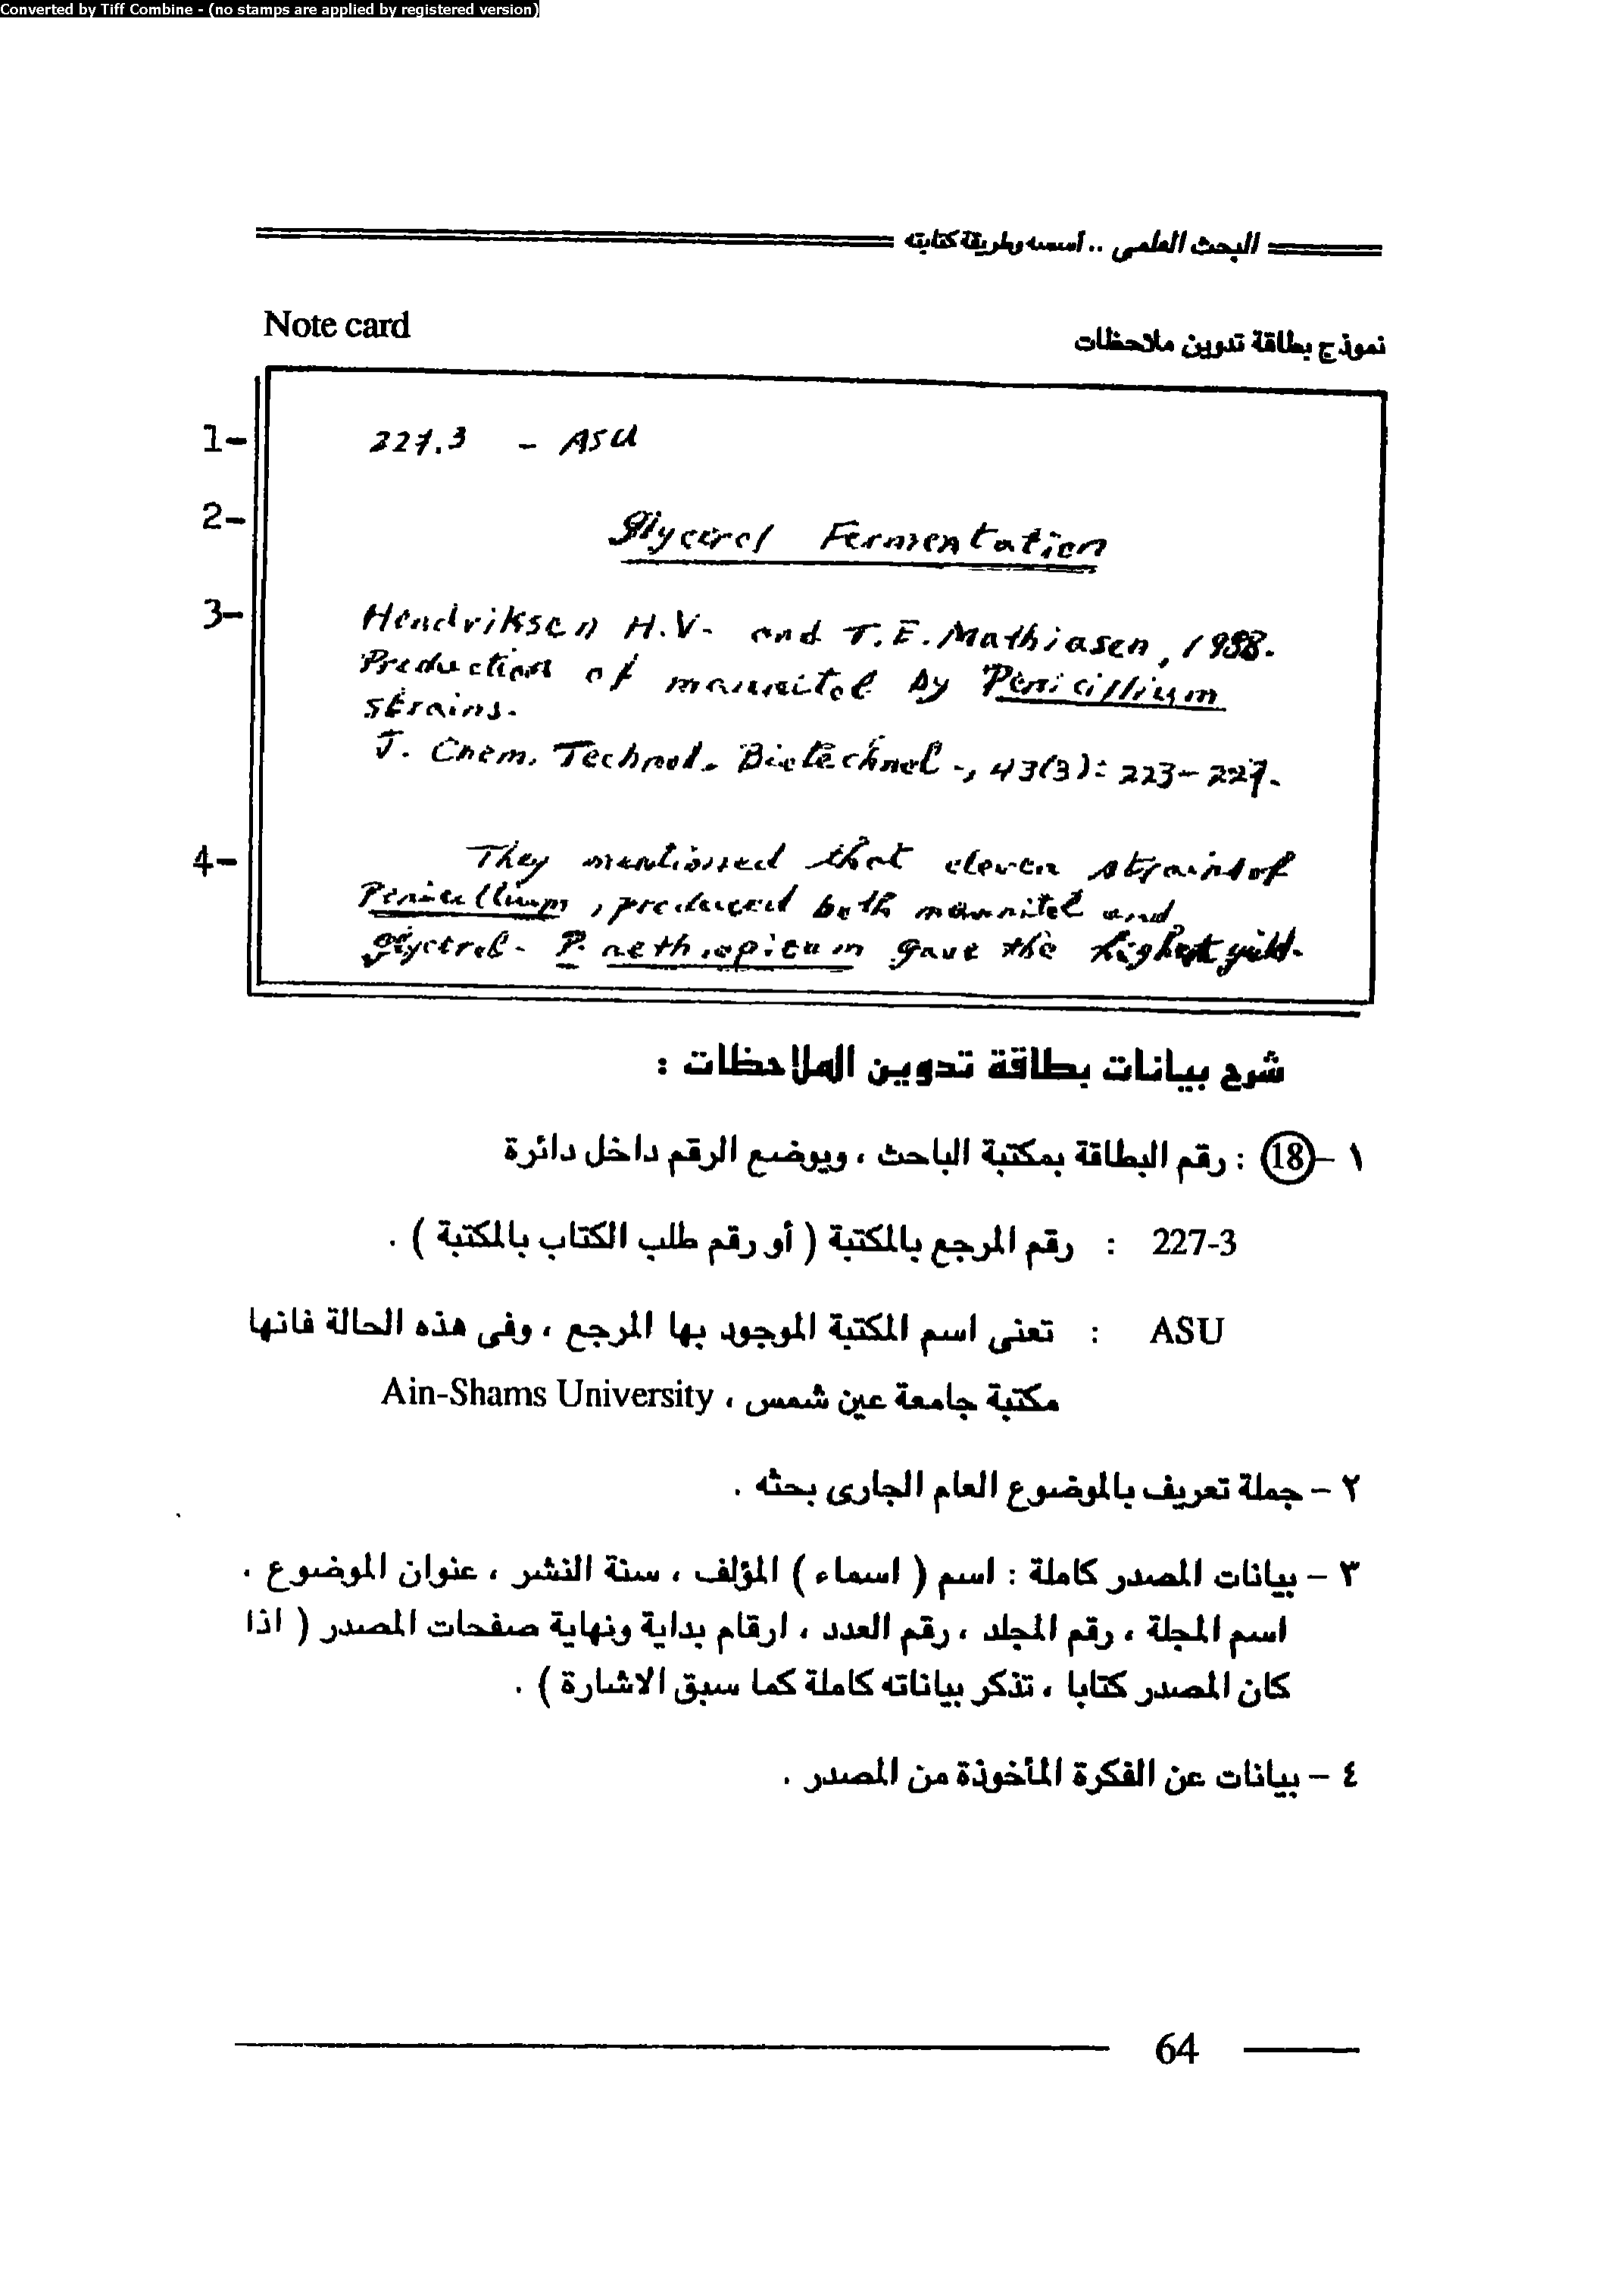 Converted by Tiff Combine - (no stamps are applied by registered version)
البحث العلمى .. أسسه وطريقة كتابته
Note card
نموذج بطاقة تدوين ملاحظات
1- 227.3 - ASU
2- Glycerol Fermentation
3- Hendriksen H.V. and T.E. Mathiasen, 1988.
Production of mannitol by Penicillium
strains.
J. Chem. Technol. Biotechnol., 43(3): 223-227.
4- They mentioned that eleven strains of
Penicillium, produced both mannitol and
glycerol. P. aethiopicum gave the highest yield.
شرح بيانات بطاقة تدوين الملاحظات :
١ - 18 : رقم البطاقة بمكتبة الباحث ، ويوضع الرقم داخل دائرة
227-3 : رقم المرجع بالمكتبة ( أو رقم طلب الكتاب بالمكتبة ) .
ASU : تعنى اسم المكتبة الموجود بها المرجع ، وفى هذه الحالة فانها
مكتبة جامعة عين شمس ، Ain-Shams University
٢ - جملة تعريف بالموضوع العام الجارى بحثه .
٣ - بيانات المصدر كاملة : اسم ( اسماء ) المؤلف ، سنة النشر ، عنوان الموضوع .
اسم المجلة ، رقم المجلد ، رقم العدد ، ارقام بداية ونهاية صفحات المصدر ( اذا
كان المصدر كتابا ، تذكر بياناته كاملة كما سبق الاشارة ) .
٤ - بيانات عن الفكرة المأخوذة من المصدر .
64